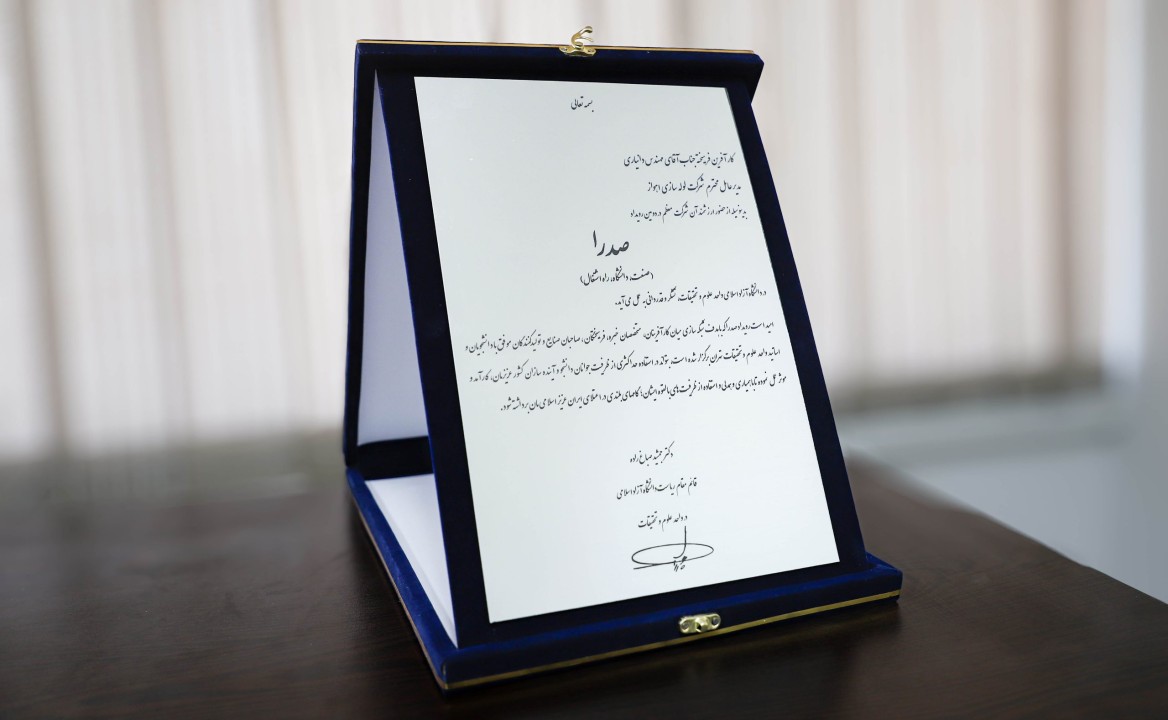 بسمه تعالی
کارآفرین فرهیخته جناب آقای مهندس دانیاری
مدیرعامل محترم شرکت لوله سازی اهواز
بدینوسیله از حضور ارزشمند آن شرکت معظم در دومین رویداد
صدرا
(صنعت، دانشگاه، راه اشتغال)
در دانشگاه آزاد اسلامی واحد علوم و تحقیقات، تشکر و قدردانی به عمل می آید.
امید است رویداد صدرا که با هدف شبکه سازی میان کارآفرینان، متخصصان خبره، فرهیختگان، صاحبان صنایع و تولیدکنندگان موفق با دانشجویان و
اساتید واحد علوم و تحقیقات تهران برگزار شده است، بتواند در استفاده حداکثری از ظرفیت جوانان دانشجو و آینده سازان کشور عزیزمان، کارآمد و
موثر عمل نموده تا با همیاری و همدلی و استفاده از ظرفیت های بالقوه ایشان؛ گامهای بلندی در اعتلای ایران عزیز اسلامی مان برداشته شود.
دکتر جمشید صباغ زاده
قائم مقام ریاست دانشگاه آزاد اسلامی
در واحد علوم و تحقیقات